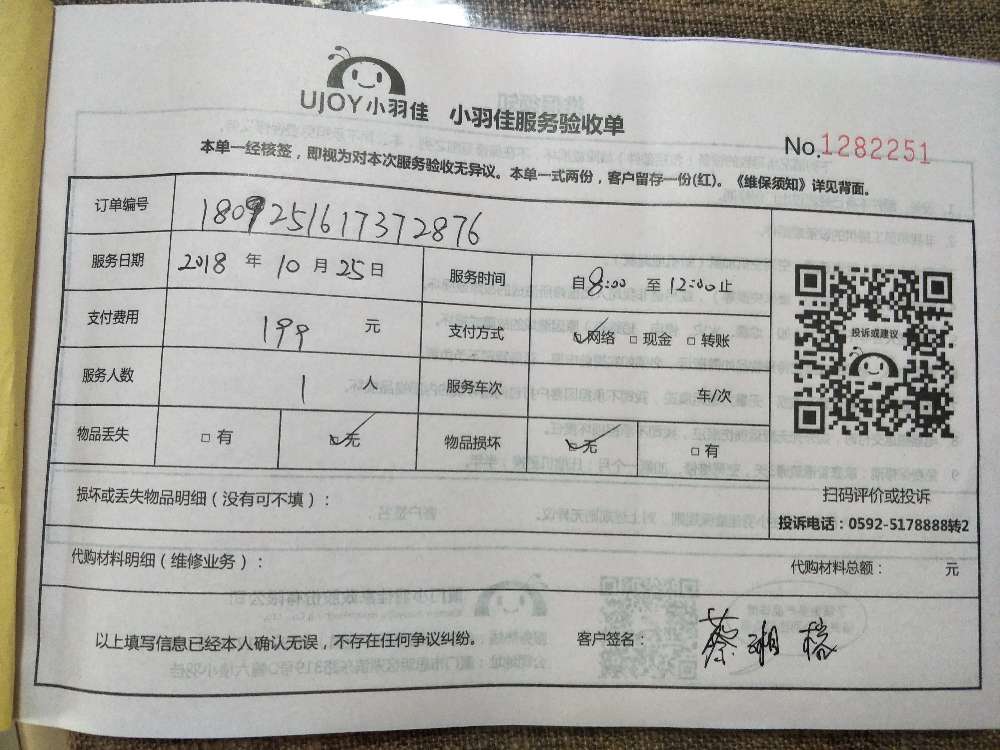 UJOY小羽佳 小羽佳服务验收单
No.1282251
本单一经核签，即视为对本次服务验收无异议。本单一式两份，客户留存一份(红)。《维保须知》详见背面。
订单编号 180925161737 2876
服务日期 2018 年 10 月 25 日 服务时间 自8:00 至 12:00止
支付费用 199 元 支付方式 □网络 □现金 □转账
服务人数 1 人 服务车次 车/次
物品丢失 □有 □无 物品损坏 □无 □有
投诉或建议
扫码评价或投诉
投诉电话：0592-5178888转2
损坏或丢失物品明细（没有可不填）：
代购材料明细（维修业务）： 代购材料总额： 元
以上填写信息已经本人确认无误，不存在任何争议纠纷。 客户签名：蔡湘